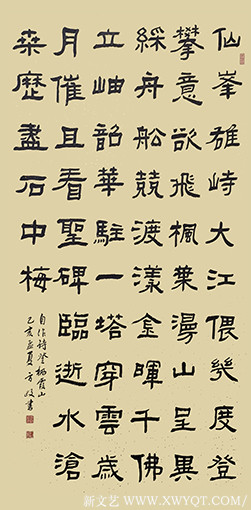 仙峯雄峙大江隈幾度登
攀意欲飛楓葉漫山呈異
綵舟舩競渡漾金暉千佛
立岫韶華駐一塔穿雲歲
月催且看聖碑臨逝水滄
桑歷盡石中梅
自作詩登栖霞山
己亥孟夏方書
新文艺 WWW.XWYQT.COM